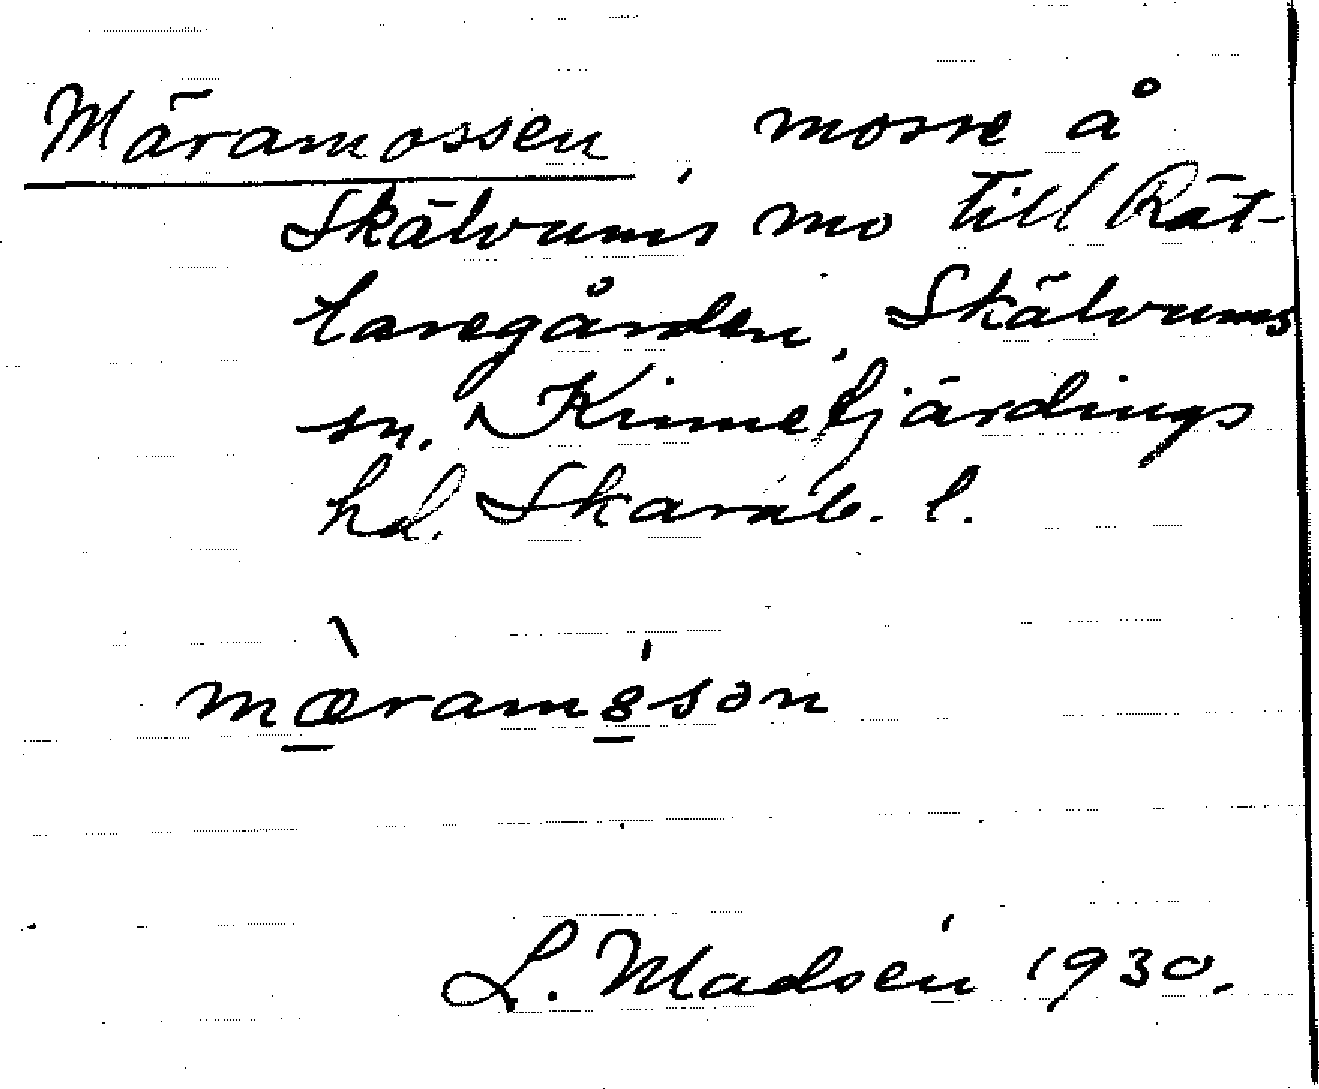 Märamossen, mosse å
Skälvums mo till Rät-
taregården, Skälvums
sn. Kinnefjärdings
hd. Skarab. l.
mæ̀ramósən
L. Madsén 1930.